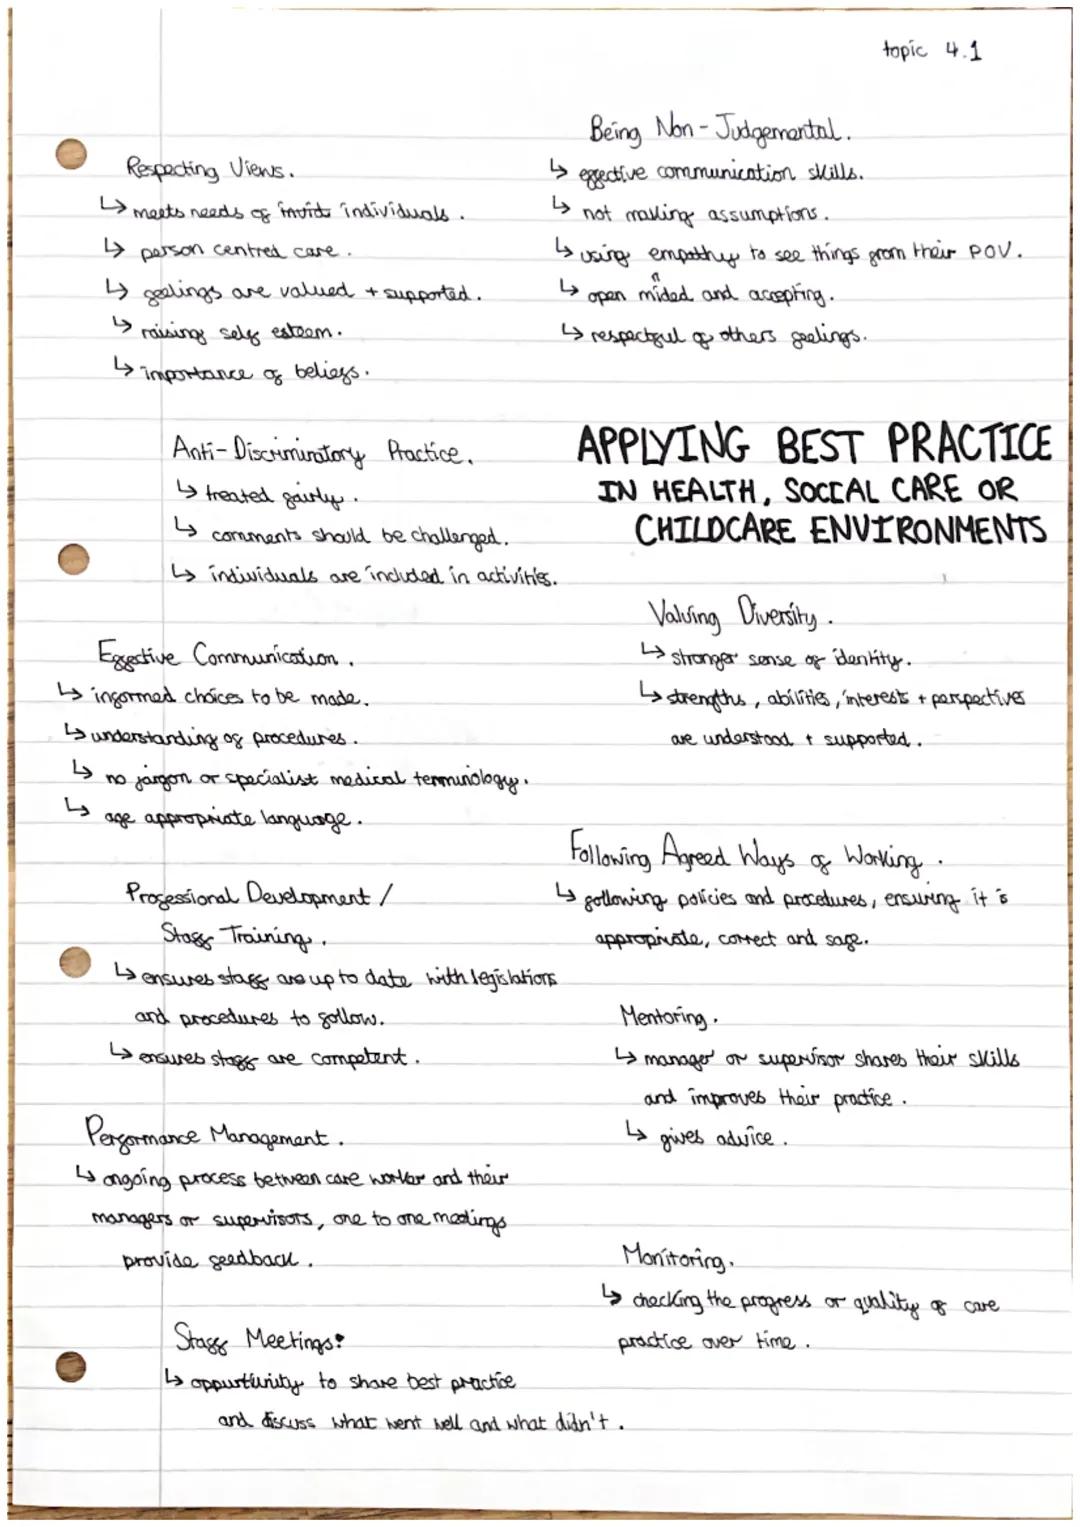 topic 4.1
Respecting Views.
↳ meets needs of individuals.
↳ person centred care.
↳ feelings are valued + supported.
↳ raising self esteem.
↳ importance of beliefs.
Being Non-Judgemental.
↳ effective communication skills.
↳ not making assumptions.
↳ using empathy to see things from their POV.
↳ open minded and accepting.
↳ respectful of others feelings.
Anti-Discriminatory Practice.
↳ treated fairly.
↳ comments should be challenged.
↳ individuals are included in activities.
APPLYING BEST PRACTICE
IN HEALTH, SOCIAL CARE OR
CHILDCARE ENVIRONMENTS
Effective Communication.
↳ informed choices to be made.
↳ understanding of procedures.
↳ no jargon or specialist medical terminology.
↳ age appropriate language.
Valuing Diversity.
↳ stronger sense of identity.
↳ strengths, abilities, interests + perspectives
are understood + supported.
Professional Development /
Staff Training.
↳ ensures staff are up to date with legislations
and procedures to follow.
↳ ensures staff are competent.
Following Agreed Ways of Working.
↳ following policies and procedures, ensuring it is
appropriate, correct and safe.
Mentoring.
↳ manager or supervisor shares their skills
and improves their practice.
↳ gives advice.
Performance Management.
↳ ongoing process between care worker and their
managers or supervisors, one to one meetings
provide feedback.
Monitoring.
↳ checking the progress or quality of care
practice over time.
Staff Meetings.
↳ oppurtunity to share best practice
and discuss what went well and what didn't.